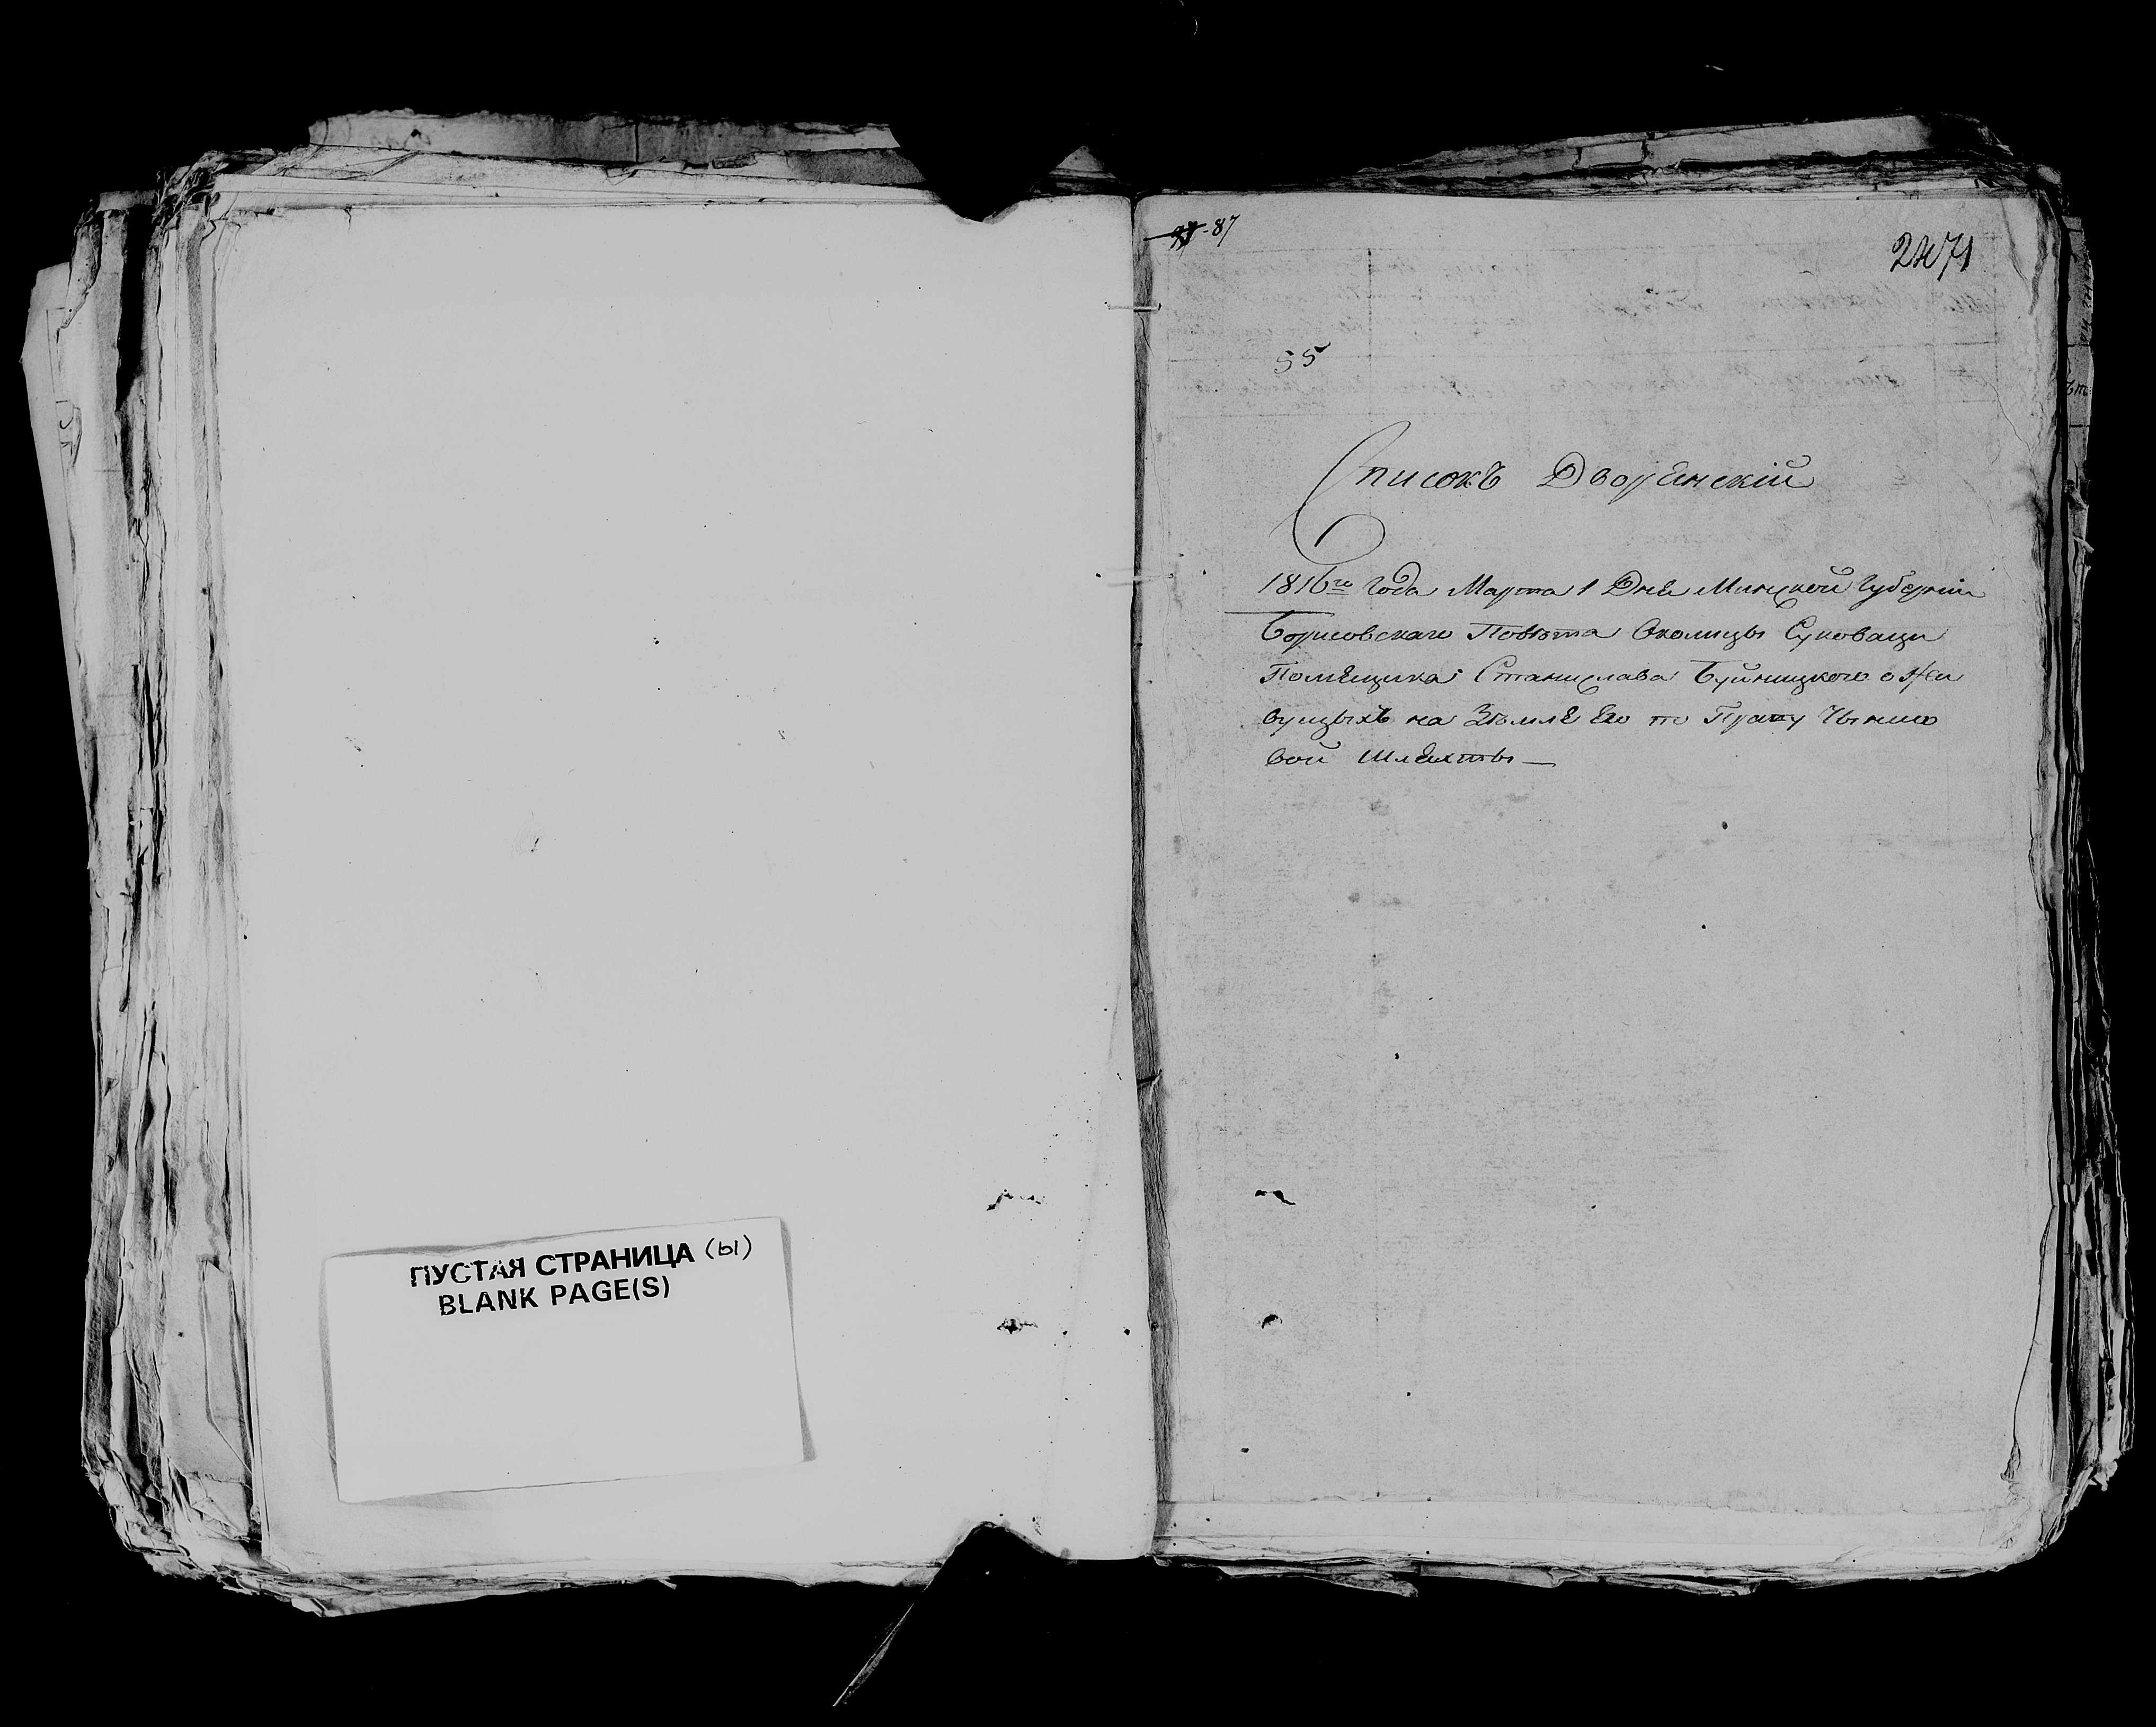 ПУСТАЯ СТРАНИЦА (ы)
BLANK PAGE(S)
87
2471
55
Списокъ Дворенскій
1816го Года Марта 1 Дне Минской Губерніи
Борисовскаго Повѣта Околицы Суковащи
Помещика Станислава Буйницкого о Жи
вущыхъ на Зѣмле Его по Праву Чыншо
вой Шлехты —